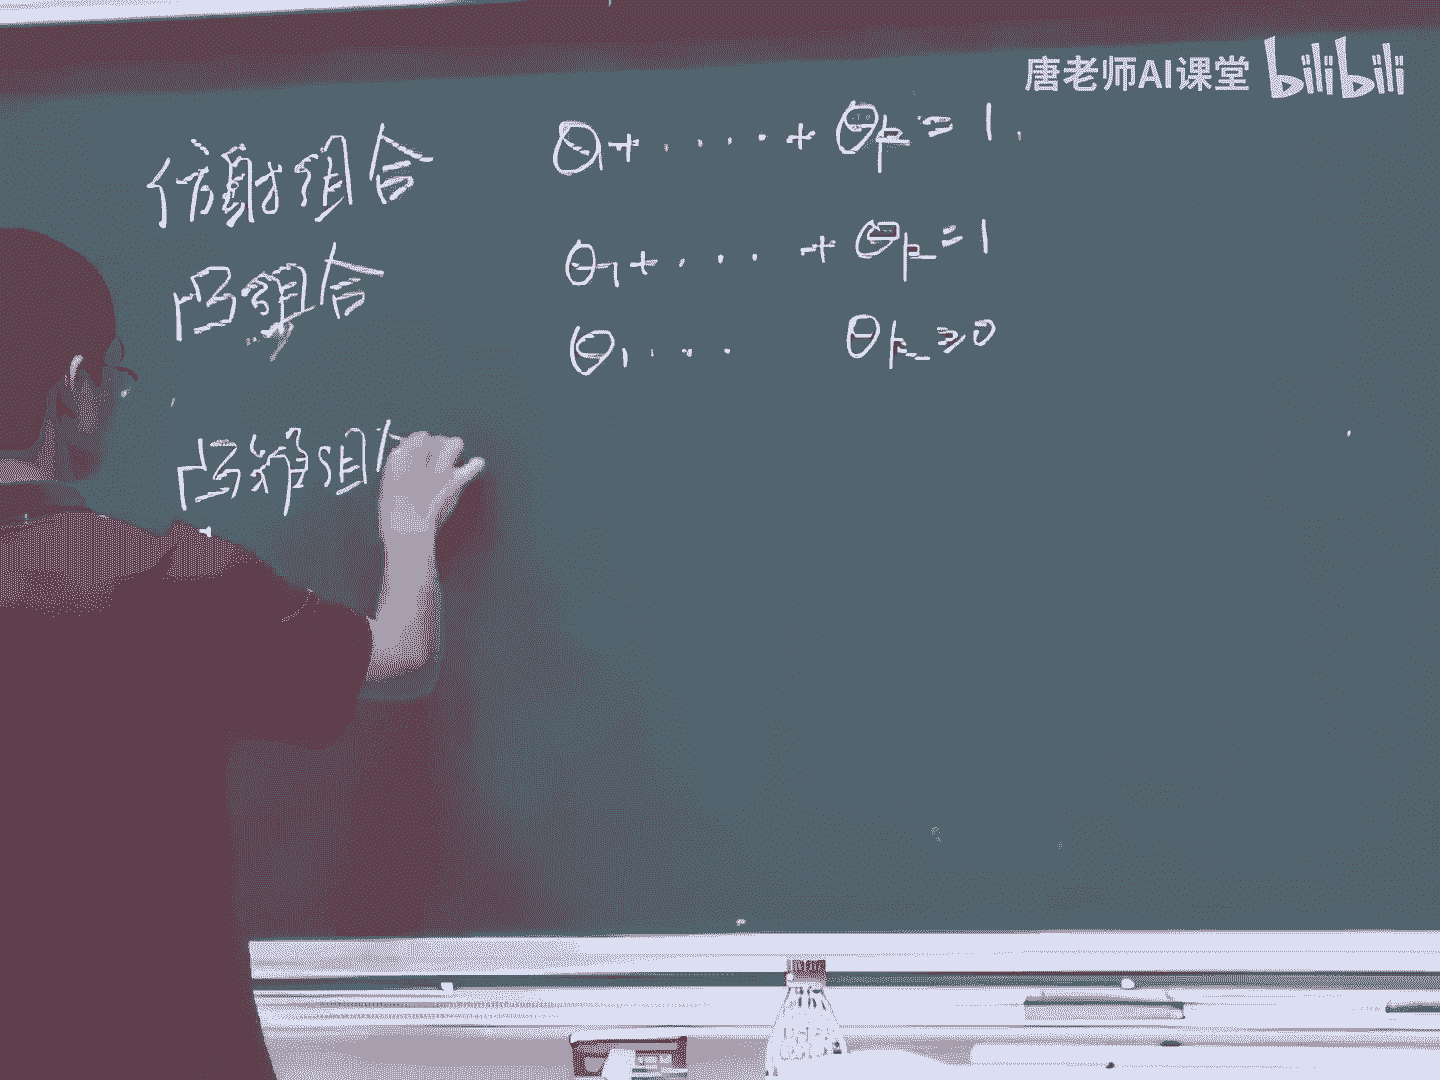 唐老师AI课堂 bilibili
仿射组合 θ₁+ · · · · + θk = 1,
凸组合 θ₁+ · · · + θk = 1
θ₁ · · · θk ≥0
凸锥组